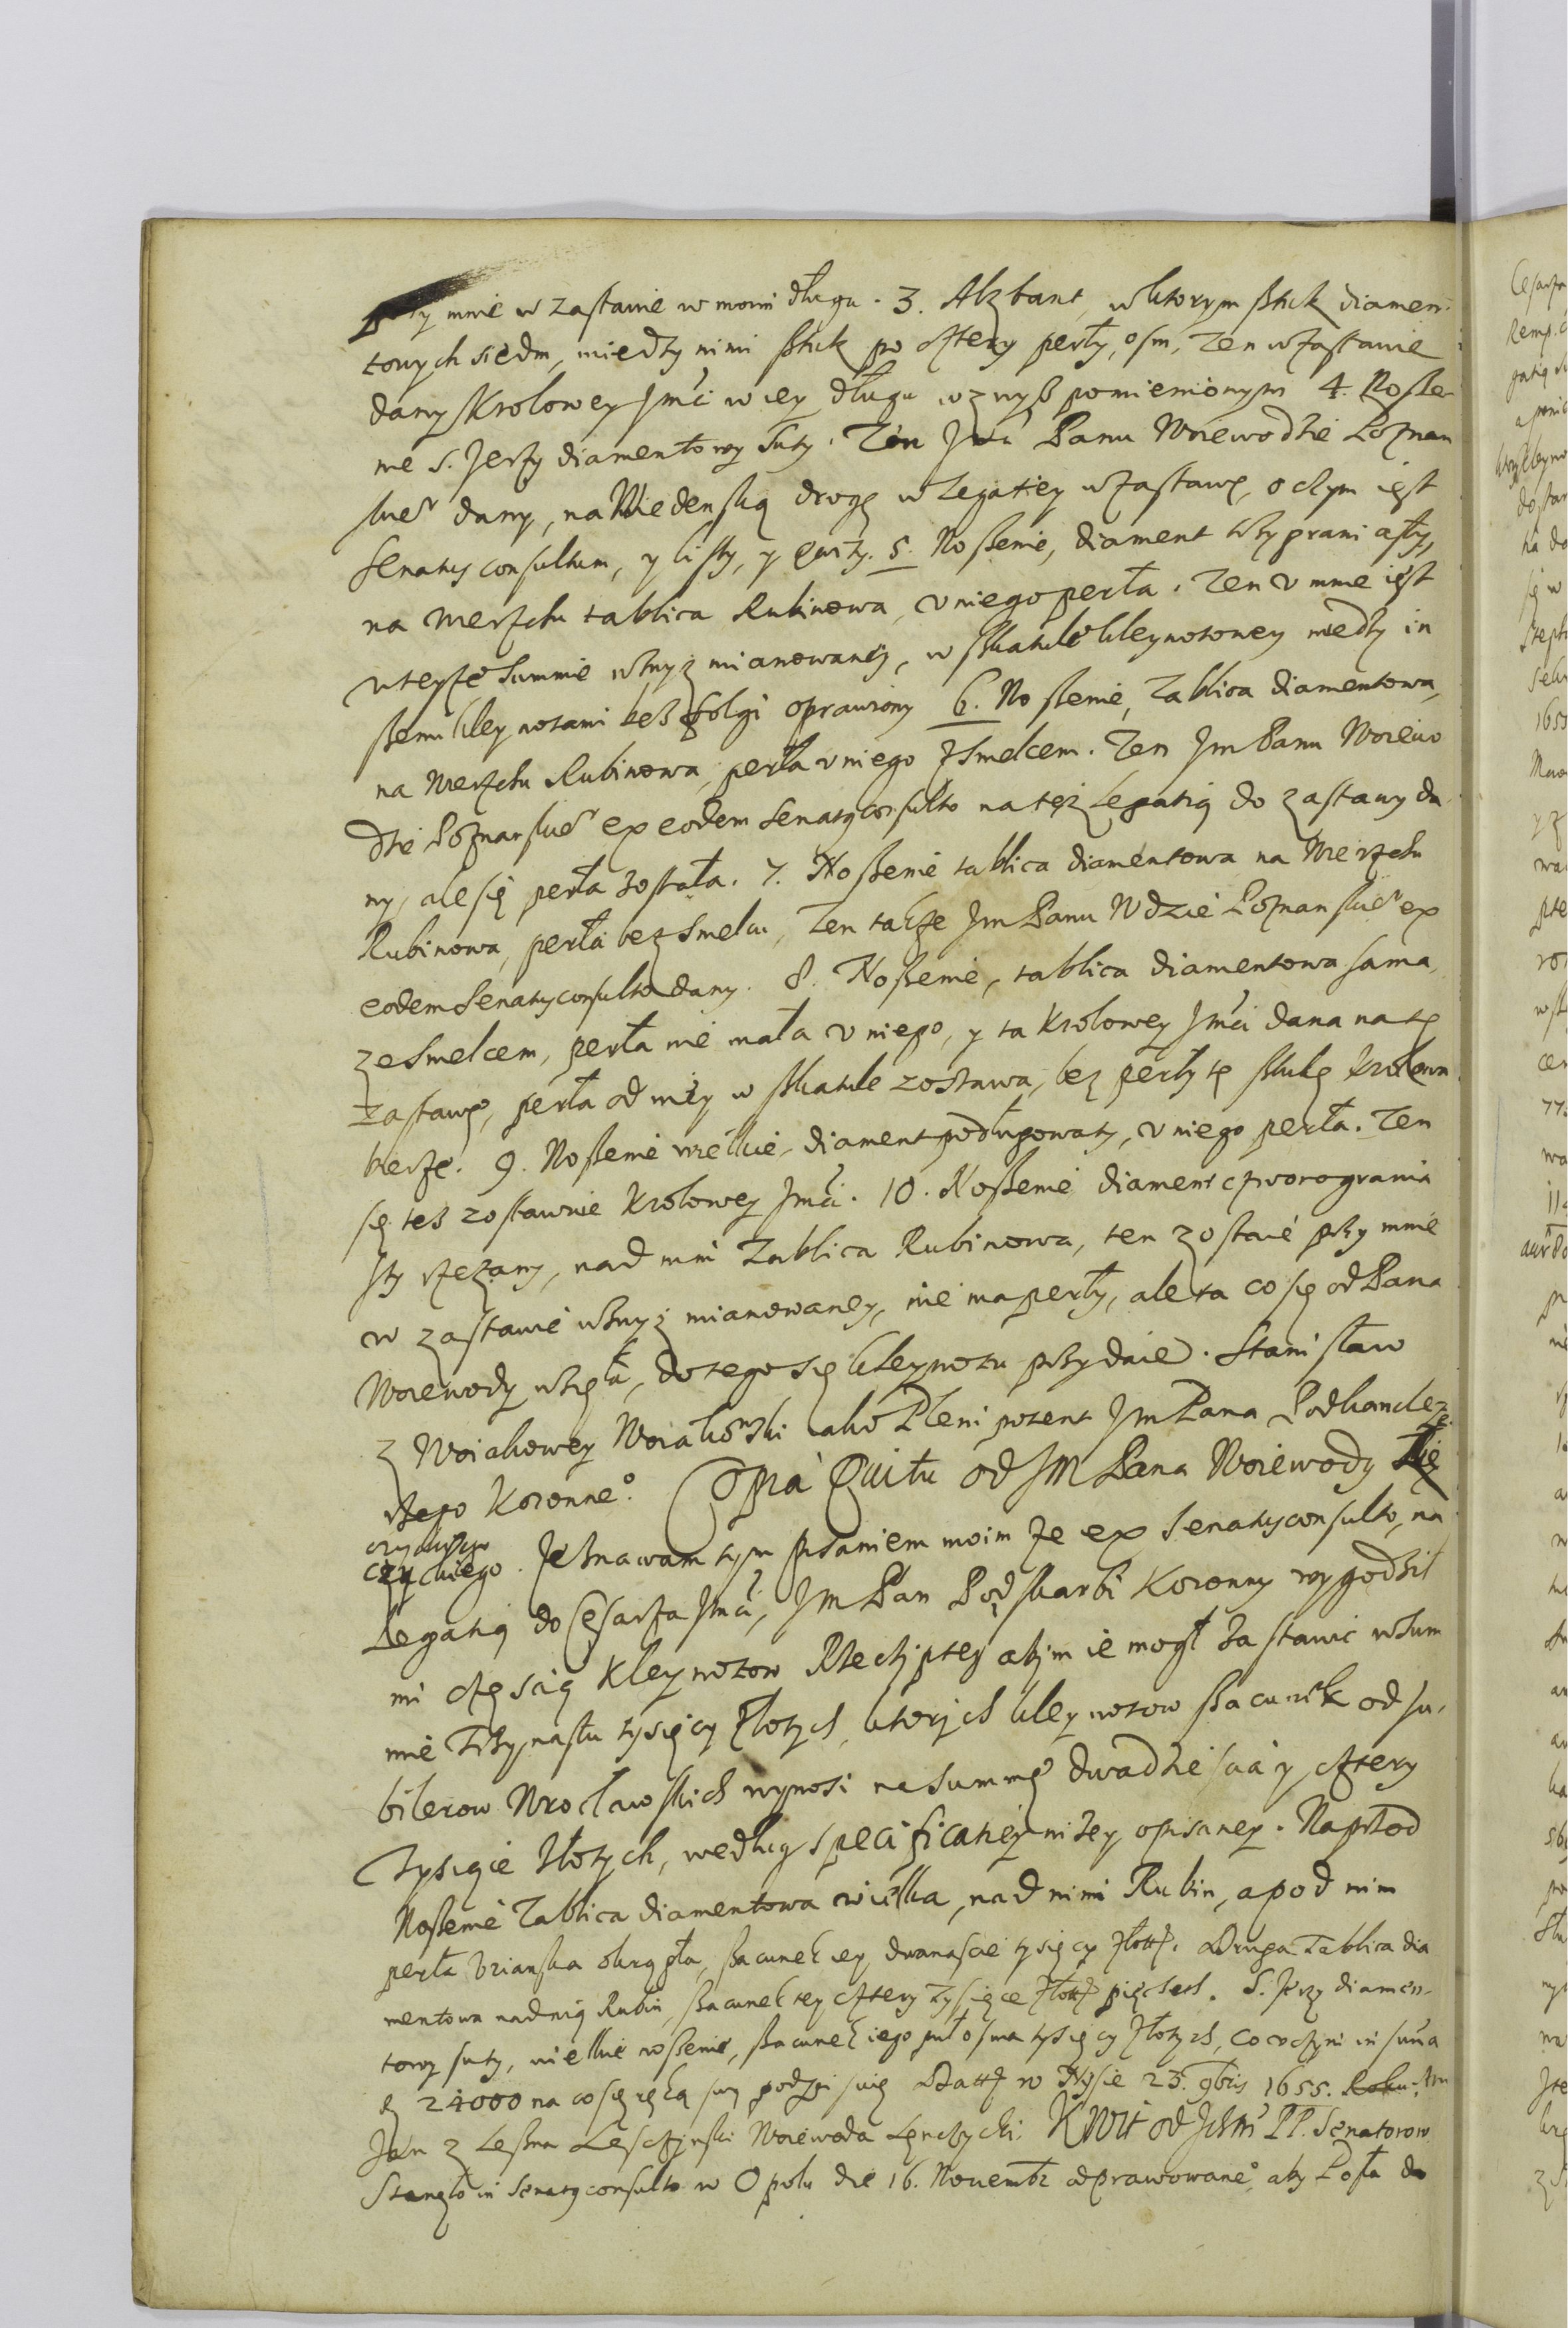 mnie w zastawie w moim długu. 3. Alzbant, w ktorym sztuk diamen-
towych siedm, miedzy nimi sztuk po cztery perły, osm, Ten w zastawie
dany Krolowey Jmći w iey długu wzwyß pomienionym 4. Noße-
nie S. Jerzy diamentowy suty. Ten Jmći Panu Woiewodzie Poznan
skieo dany, na Wiedenską drogę w Legatiey w zastawę, o czym iest
Senatus consultum, y listy, y qwity. 5. Noßenie, diament trzygraniasty,
na wierzchu tablica Rubinowa, v niego perła. Ten v mnie iest
w teyże Summie wzwyż mianowaney, w szkatule kleynotowey miedzy in
ßemi kleynotami beß folgi oprawiony 6. Noßenie, Tablica diamentowa,
na wierzchu Rubinowa, perła v niego z smelcem. Ten Jm Panu Woiewo
dzie Poznanskieo ex eodem Senatusconsulto na też Legatią do zastawy da
ny, ale się perła została. 7. Noßenie tablica diamentowa na wierzchu
Rubinowa, perła bez smelcu, Ten także Jm Panu Wdzie Poznanskieo ex
eodem Senatusconsulto dany. 8. Noßenie, tablica diamentowa sama,
ze smelcem, perła nie mała v niego, y ta Krolowey Jmći dana na tę
zastawę, perła od niey w szkatule zostawa, bez perły tę sztukę Krolowa
bierze. 9. Noßenie wielkie, diament podługowaty, v niego perła. Ten
się teß zostawuie Krolowey Jmći. 10. Noßenie diament czworogrania
sty rzezany, nad nim Tablica Rubinowa, ten zostaie przy mnie
w zastawie wzwyż mianowaney, nie ma perły, ale ta co się od Pana
Woiewody wzięła, do tego się kleynotu przydaie. Stanisław
z Woiakowey Woiakowski iako Plenipotent Jm Pana Podkancle
rzego Koronneo. Copia Quitu od JM Pana Woiewody Łę
czyckiego
czyckiego. Zeznawam tym pisaniem moim że ex Senatusconsulto, na
Legatią do Cesarza Jmći, JM Pan Podskarbi Koronny wygodził
mi częscią Kleynotow Rzeczyptey abym ie mogł zastawic w sum
mie Trzynastu tysięcy złotych, ktorych kleynotow szacunek od Ju-
bilerow Wrocławskich wynosi na summę dwadziescia y cztery
Tysiące złotych, według specificatiey nizey opisaney. Naprzod
Noßenie Tablica diamentowa wielka, nad nimi Rubin, a pod nim
perła Vrianska okrągła, szacunek iey, dwanascie tysięcy złott. Druga Tablica dia
mentowa nad nią Rubin, szacunek iey cztery Tysiące złott pięcset. S. Jerzy diamen-
towy suty, wielkie noßenie, szacunek iego puł osma tysięcy złotych, co vczyni in suma
24000 na co się ręką swą podpisuię Datt w Nysie 23. 9bris 1655. Roku.
Jan z Leszna Lesczynski Woiewoda Lęnczycki. Kwit od Jchm PP. Senatorow
Stanęło in Senatusconsulto w Opolu die 16. Nouembr odprawowaneo, aby Posła do